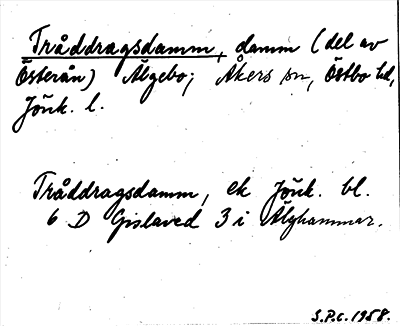 Tråddragsdamm, damm (del av
Österån) Älgebo; Åkers sn, Östbo hd,
Jönk. l.
Tråddragsdamm, ek Jönk. bl.
6 D Gislaved 3 i Älghammar.
S.P.C. 1958.